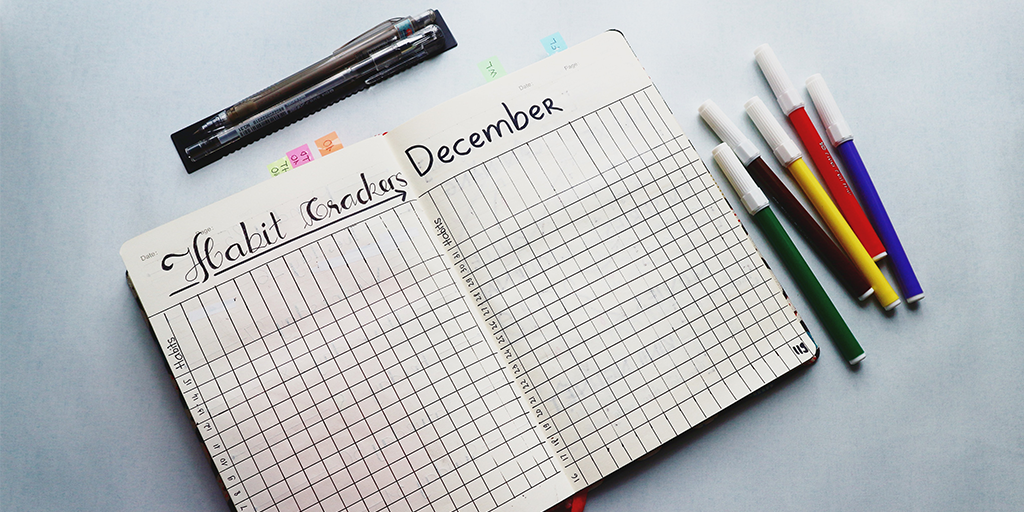 Date:
Page:
Habit Trackers
December
Date:
Page:
Habits
15
14
13
12
11
10
9
8
7
Habits
31
30
29
28
27
26
25
24
23
22
21
20
19
18
17
16
119